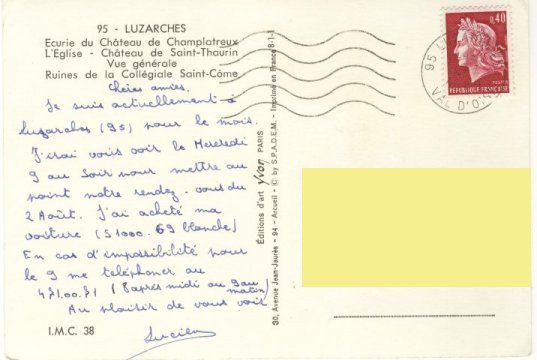 95 - LUZARCHES
Ecurie du Château de Champlatreux
L'Eglise - Château de Saint-Thaurin
Vue générale
Ruines de la Collégiale Saint-Côme
Chères amies,
Je suis actuellement à
Luzarches (95) pour le mois.
J'irai vous voir le Mercredi
9 au soir pour mettre au
point notre rendez-vous du
2 Août. J'ai acheté ma
voiture (S1000. 69 blanche)
En cas d'impossibilité pour
le 9 me téléphoner au
471.00.71 (8 après midi au 9 au
matin)
Au plaisir de vous voir
Lucien
I.M.C. 38
30, Avenue Jean-Jaurès - 94 - Arcueil - © by S.P.A.D.E.M. - Imprimé en France 8-1-1
Editions d'art Yvon PARIS
0,40
REPUBLIQUE FRANÇAISE
95
VAL D'OISE